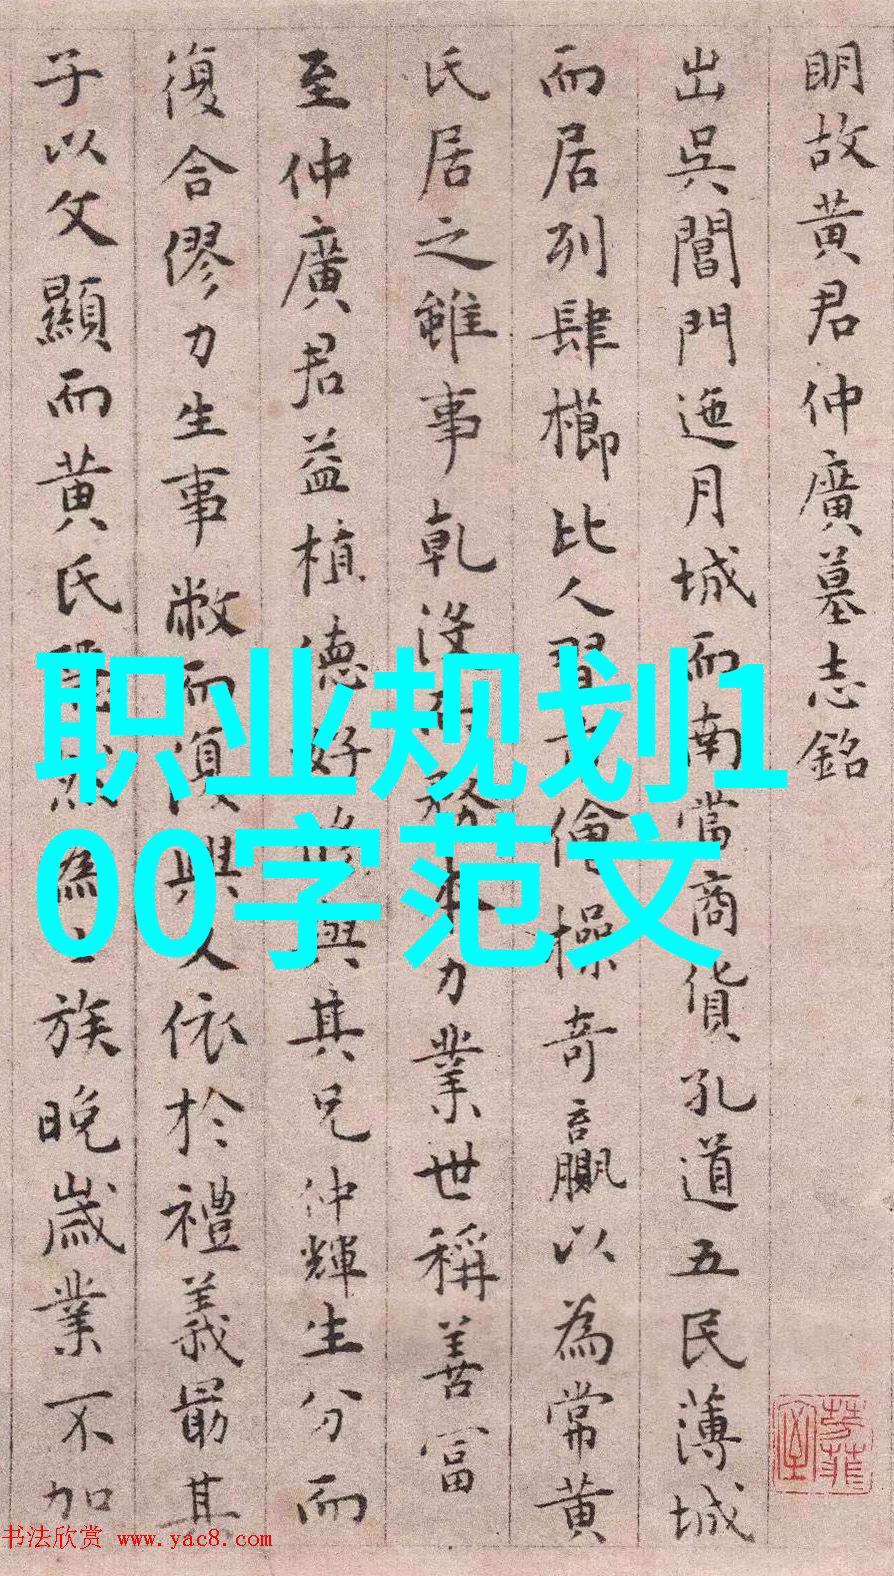 明故黄君仲廣墓志銘
出吳閶門迤月城而南當商貨孔道五民薄城
而居列肆櫛比人習市儈操奇贏以為常黄
氏居之雖事乾沒而務本力業世稱善富
至仲廣君益植德好脩與其兄仲輝生分而
復合僇力生事敝而復興又依於禮義最其
子以文顯而黄氏為士族晚歲業不加
职业规划1
00字范文
书法欣赏 www.yac8.com